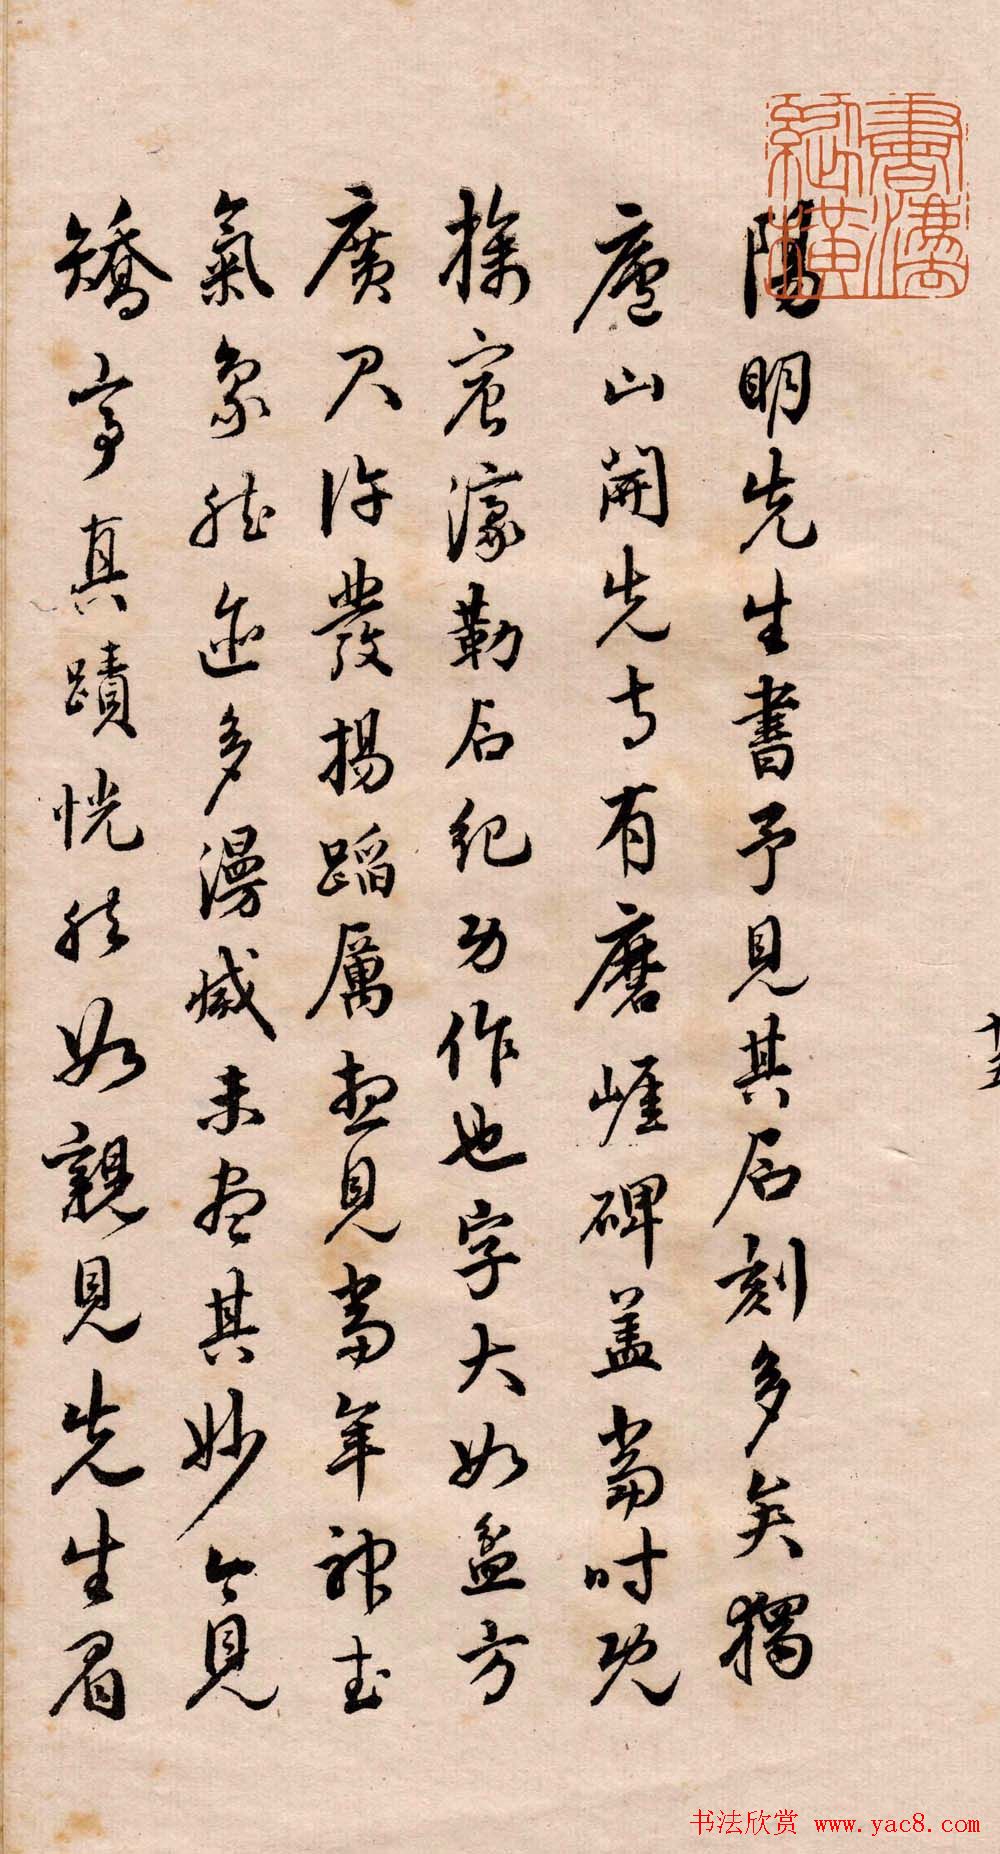 十五
陽明先生書予見其石刻多矣獨
廬山開先寺有磨崖碑盖當時既
擒宸濠勒石紀功作也字大如盌方
廣尺許發揚蹈厲想見當年神武
氣象然迹多漫滅未盡其妙今見
矯亭真蹟恍然如親見先生眉
书法欣赏 www.yac8.com